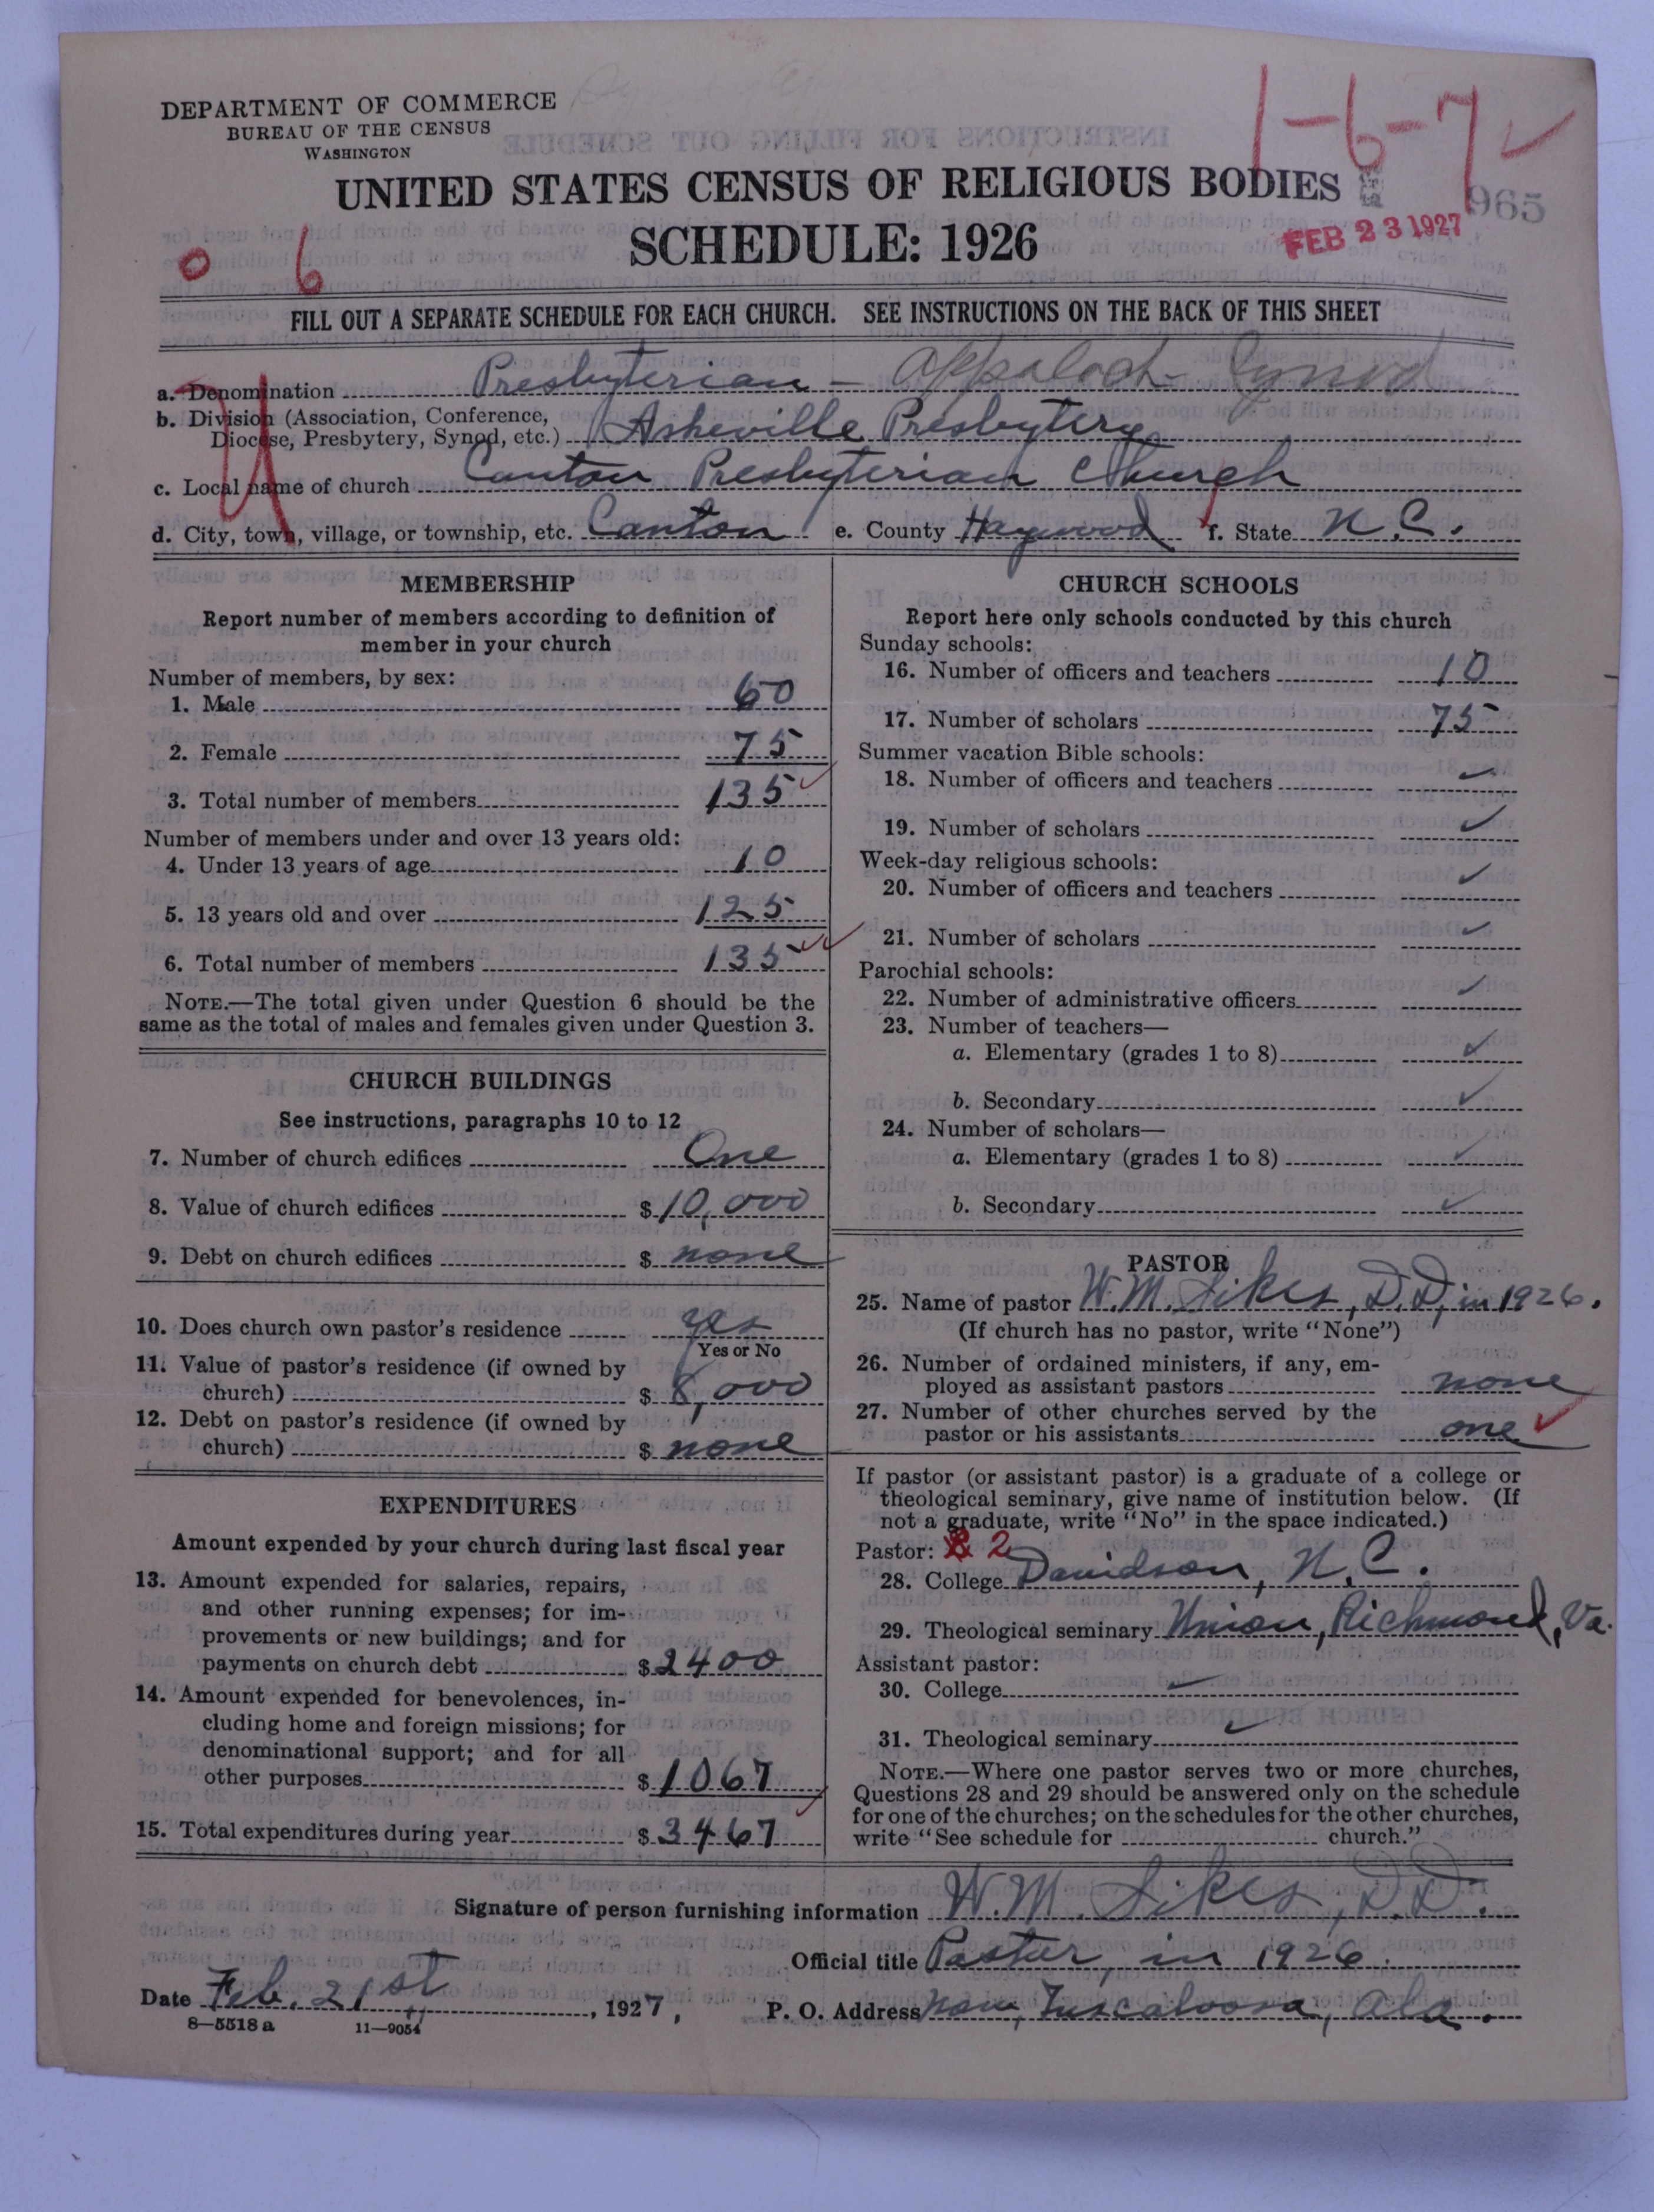 DEPARTMENT OF COMMERCE
BUREAU OF THE CENSUS
WASHINGTON
1-6-7 ✓
UNITED STATES CENSUS OF RELIGIOUS BODIES
965
SCHEDULE: 1926
FEB 23 1927
0 6
FILL OUT A SEPARATE SCHEDULE FOR EACH CHURCH. SEE INSTRUCTIONS ON THE BACK OF THIS SHEET
a. Denomination Presbyterian - Appalach- Synod
b. Division (Association, Conference,
Diocese, Presbytery, Synod, etc.) Asheville Presbytery
c. Local name of church Canton Presbyterian Church
d. City, town, village, or township, etc. Canton e. County Haywood f. State N.C.
MEMBERSHIP
Report number of members according to definition of
member in your church
Number of members, by sex:
1. Male 60
2. Female 75
3. Total number of members 135 ✓
Number of members under and over 13 years old:
4. Under 13 years of age 10
5. 13 years old and over 125
6. Total number of members 135 ✓✓
NOTE.—The total given under Question 6 should be the
same as the total of males and females given under Question 3.
CHURCH BUILDINGS
See instructions, paragraphs 10 to 12
7. Number of church edifices One
8. Value of church edifices $ 10,000
9. Debt on church edifices $ none
10. Does church own pastor's residence yes
Yes or No
11. Value of pastor's residence (if owned by
church) $ 8,000
12. Debt on pastor's residence (if owned by
church) $ none
EXPENDITURES
Amount expended by your church during last fiscal year
13. Amount expended for salaries, repairs,
and other running expenses; for im-
provements or new buildings; and for
payments on church debt $ 2400
14. Amount expended for benevolences, in-
cluding home and foreign missions; for
denominational support; and for all
other purposes $ 1067
15. Total expenditures during year $ 3467 ✓
CHURCH SCHOOLS
Report here only schools conducted by this church
Sunday schools:
16. Number of officers and teachers 10
17. Number of scholars 75
Summer vacation Bible schools:
18. Number of officers and teachers ✓
19. Number of scholars ✓
Week-day religious schools:
20. Number of officers and teachers ✓
21. Number of scholars ✓
Parochial schools:
22. Number of administrative officers ✓
23. Number of teachers—
a. Elementary (grades 1 to 8) ✓
b. Secondary ✓
24. Number of scholars—
a. Elementary (grades 1 to 8) ✓
b. Secondary ✓
PASTOR
25. Name of pastor W. M. Sikes, D.D., in 1926.
(If church has no pastor, write "None")
26. Number of ordained ministers, if any, em-
ployed as assistant pastors none
27. Number of other churches served by the
pastor or his assistants one ✓
If pastor (or assistant pastor) is a graduate of a college or
theological seminary, give name of institution below. (If
not a graduate, write "No" in the space indicated.)
Pastor: 2
28. College Davidson, N.C.
29. Theological seminary Union, Richmond, Va.
Assistant pastor:
30. College ✓
31. Theological seminary ✓
NOTE.—Where one pastor serves two or more churches,
Questions 28 and 29 should be answered only on the schedule
for one of the churches; on the schedules for the other churches,
write "See schedule for church."
Signature of person furnishing information W. M. Sikes, D.D.
Official title Pastor, in 1926.
Date Feb. 21st, 1927, P. O. Address now, Tuscaloosa, Ala.
8—5518a 11—9054